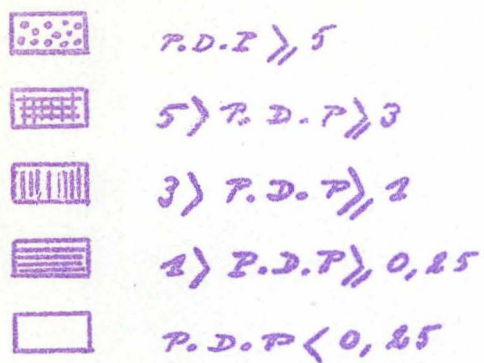 P.D.P ⩾ 5
5 > P.D.P ⩾ 3
3 > P.D.P ⩾ 1
1 > P.D.P ⩾ 0,25
P.D.P < 0,25